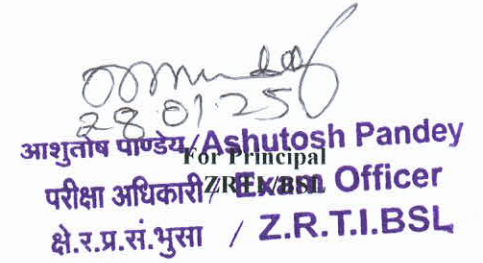 28.01.25
आशुतोष पाण्डेय/Ashutosh Pandey
For Principal
परीक्षा अधिकारी/ Exam Officer
ZRTI/BSL
क्षे.र.प्र.सं.भुसा / Z.R.T.I.BSL